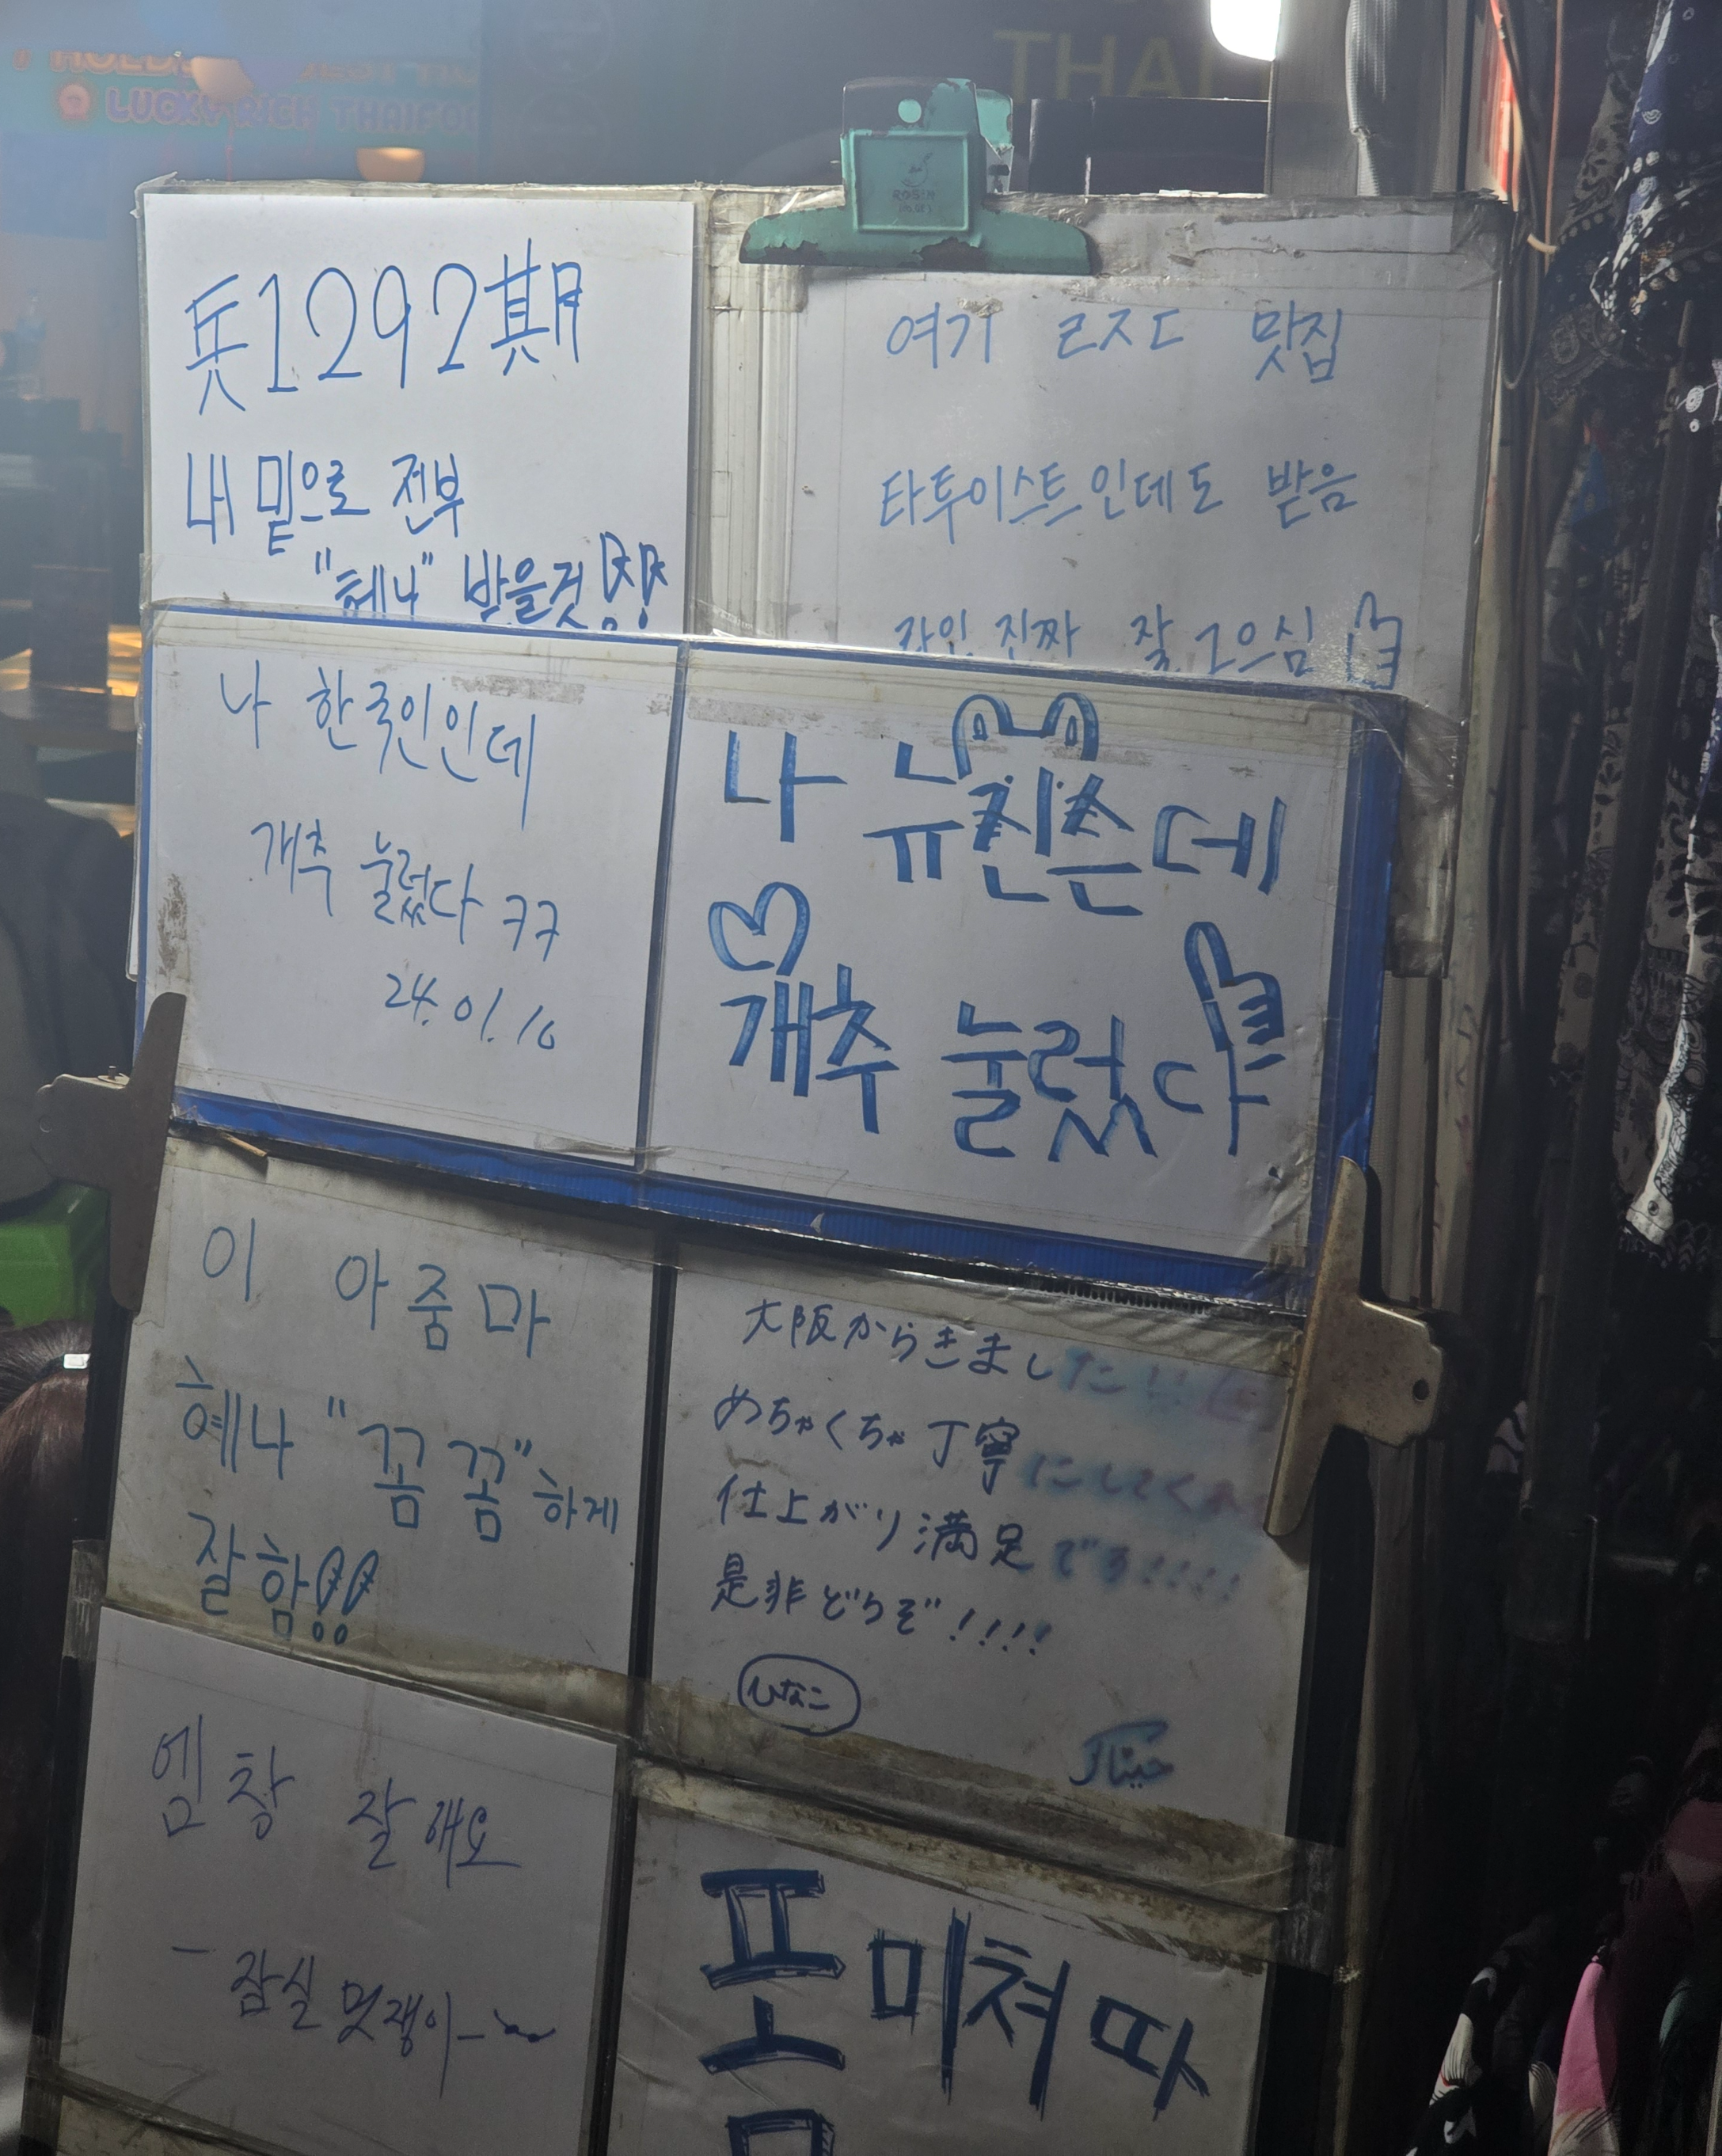 LUCKY RICH THAIFOO
THAI
兵1292期
내 밑으로 전부
"헤나" 받을것!!
여기 ㄹㅈㄷ 맛집
타투이스트인데도 받음
라인 진짜 잘 그으심
나 한국인인데
개추 눌렀다 ㅋㅋ
24.01.10
나 뉴진슨데
개추 눌렀다
이 아줌마
헤나 "꼼꼼"하게
잘함!!
大阪からきました!!
めちゃくちゃ丁寧にしてくれ
仕上がり満足です!!!!
是非どうぞ!!!!
ひなこ
엄창 잘해요
- 잠실 멋쟁이 -
폼 미쳐따